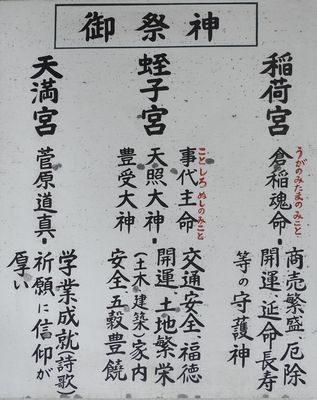 御祭神
稲荷宮
うがのみたまのみこと
倉稲魂命・商売繁盛、厄除
開運、延命長寿
等の守護神
蛭子宮
ことしろぬしのみこと
事代主命
天照大神・
豊受大神
交通安全、福徳
開運、土地繁栄
(土木建築)家内
安全五穀豊饒
天満宮
菅原道真・学業成就詩歌
祈願に信仰が
厚い